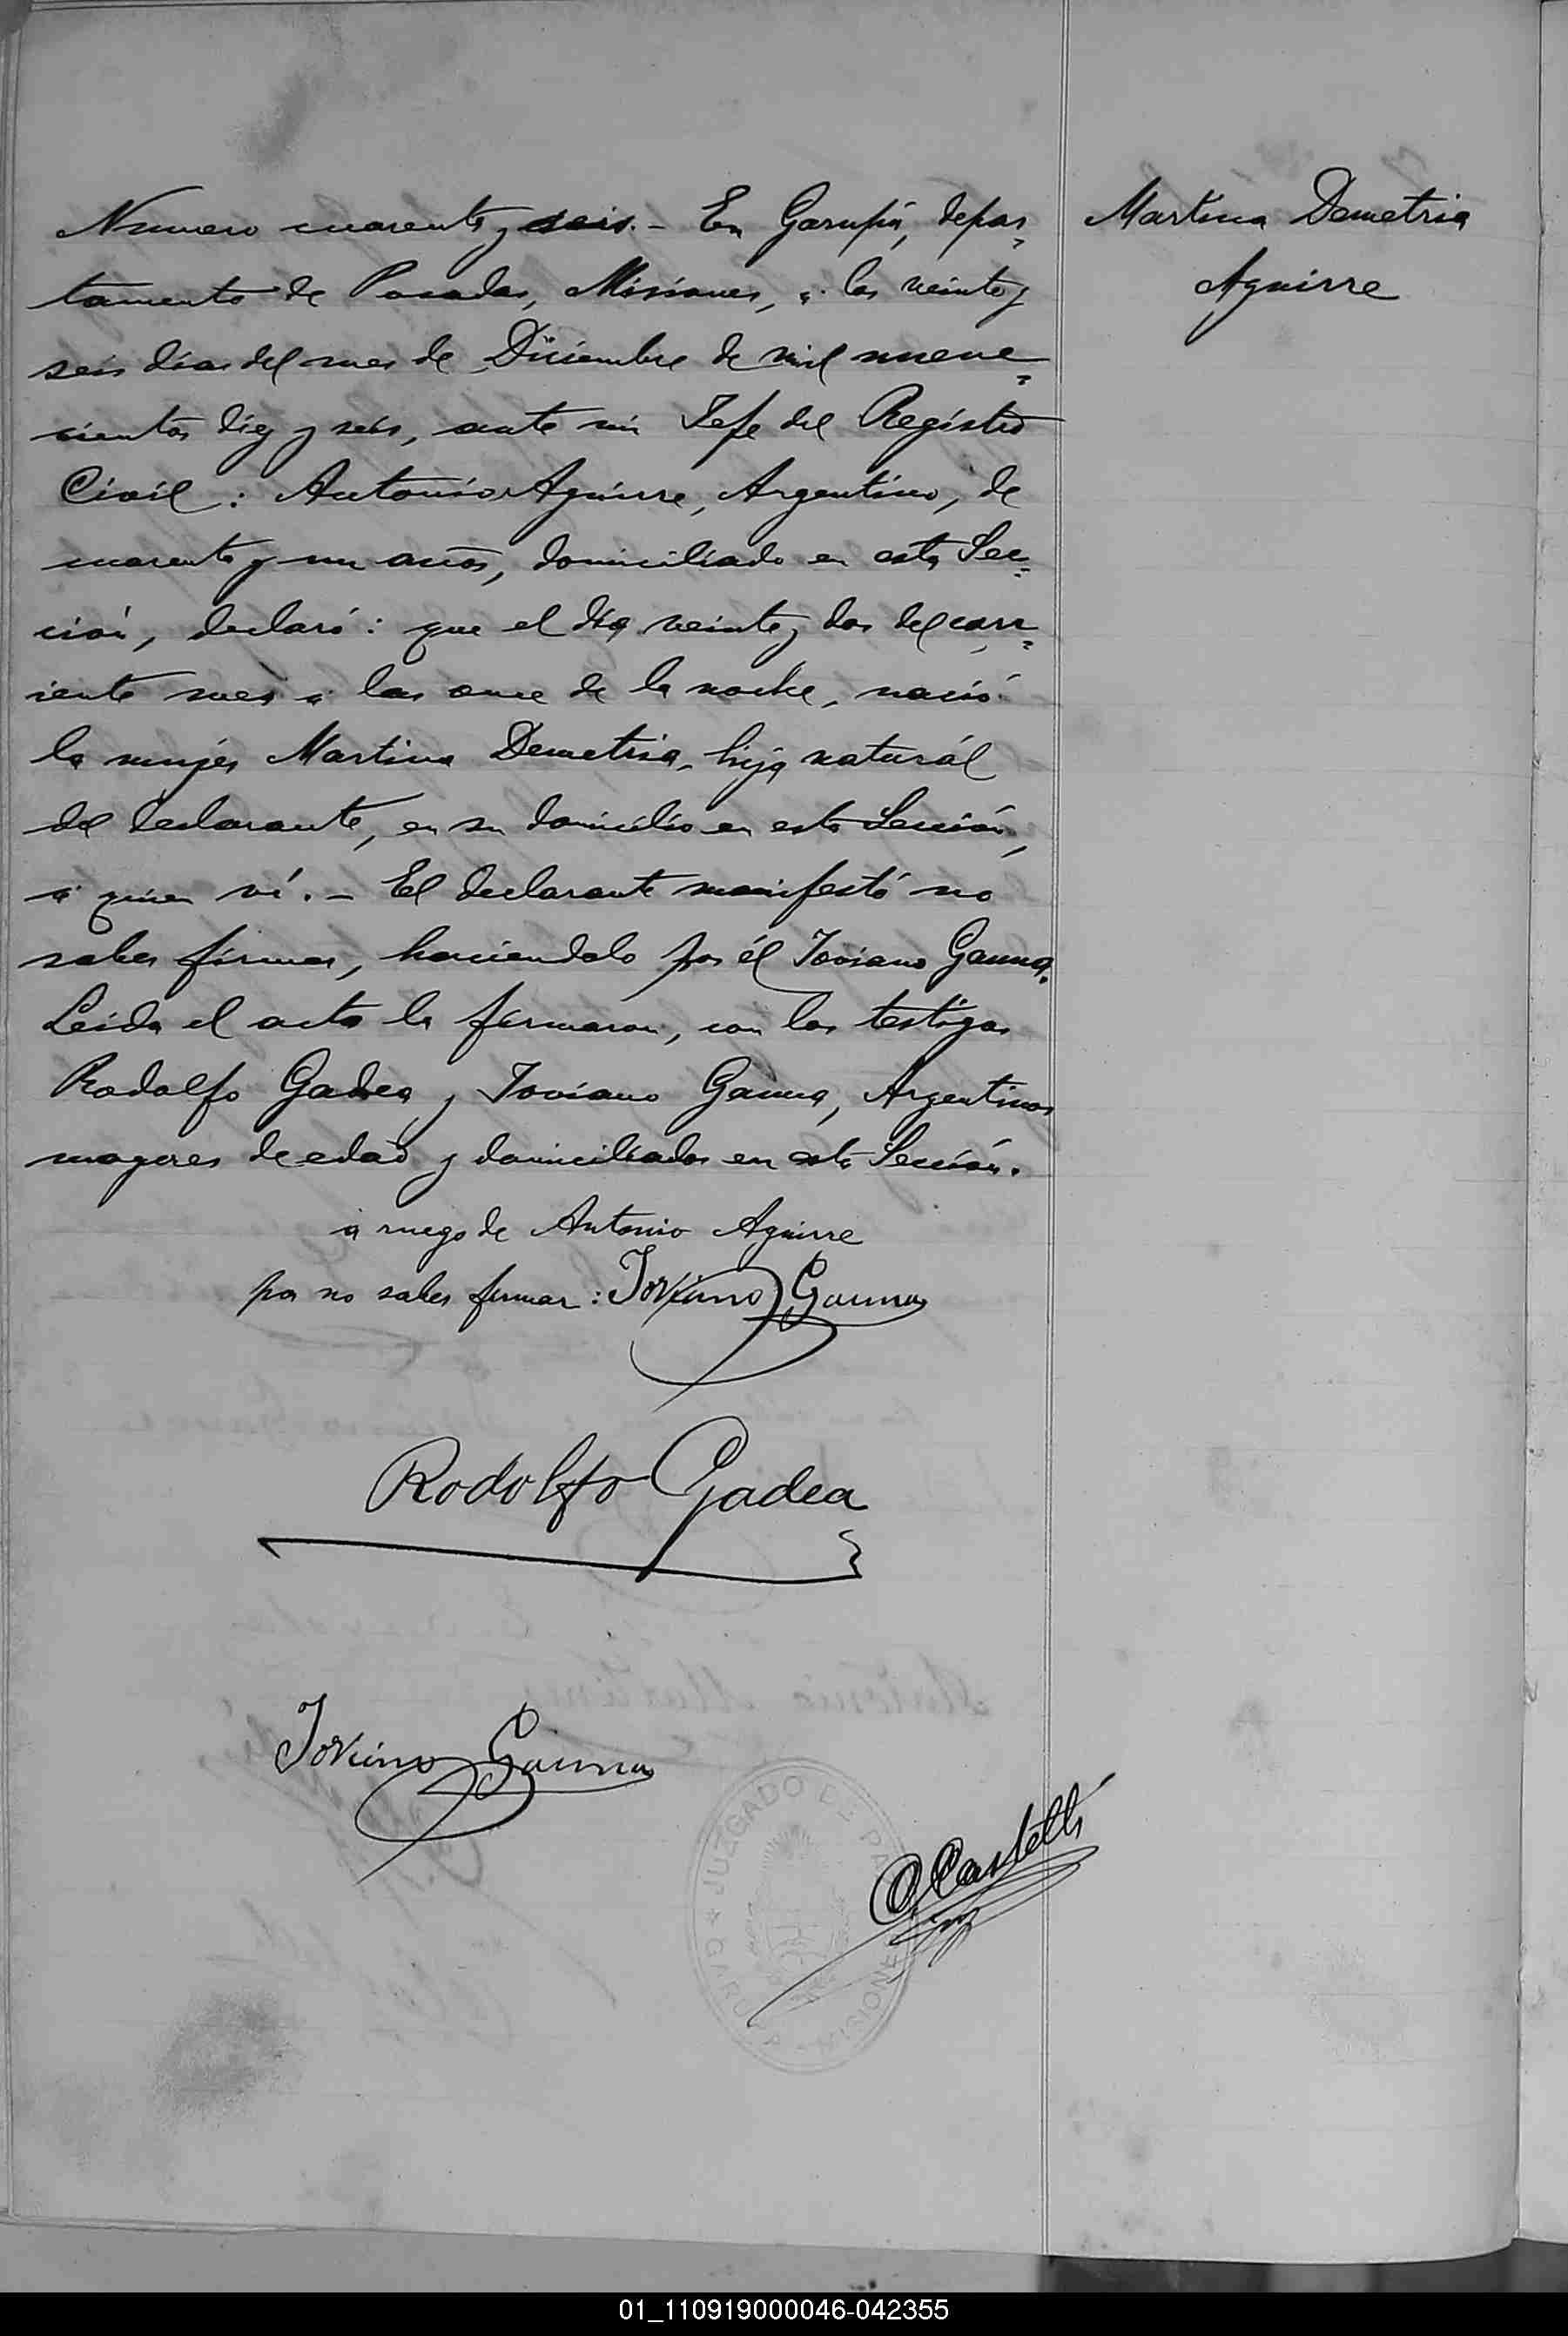 Numero cuarenta y seis.- En Garupá, depar=
tamento de Posadas, Misiones, á los veinte y
seis dias del mes de Diciembre de mil nueve=
cientos diez y seis, ante mi Jefe del Registro
Civil: Antonio Aguirre, Argentino, de
cuarenta y un años, domiciliado en esta Sec=
ción, declaró: que el día veinte y dos del corr=
iente mes á las once de la noche, nació
la mujer Martina Demetria, hija naturál
del declarante, en su domicilio en esta Sección,
á quien ví.- El declarante manifestó no
saber firmar, haciendolo por él Joviano Gauna.
Leida el acta la firmaron, con los testigos
Rodolfo Gadea y Joviano Gauna, Argentinos
mayores de edad y domiciliados en esta Sección.
á ruego de Antonio Aguirre
por no saber firmar: Joviano Gauna
Rodolfo Gadea
Joviano Gauna
Castelli
JUZGADO DE PAZ
GARUPÁ - MISIONES
Martina Demetria
Aguirre
01_110919000046-042355